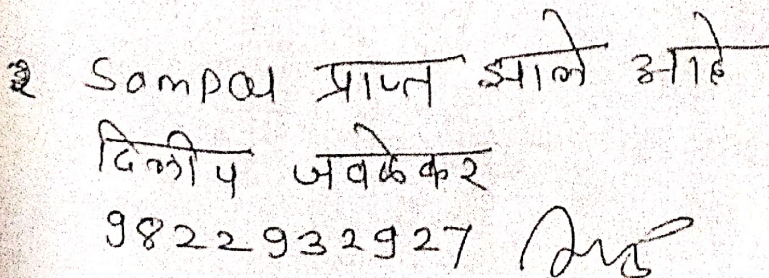 २ Sampal प्राप्त झाले आहे
दिलीप जवळेकर
9822932927